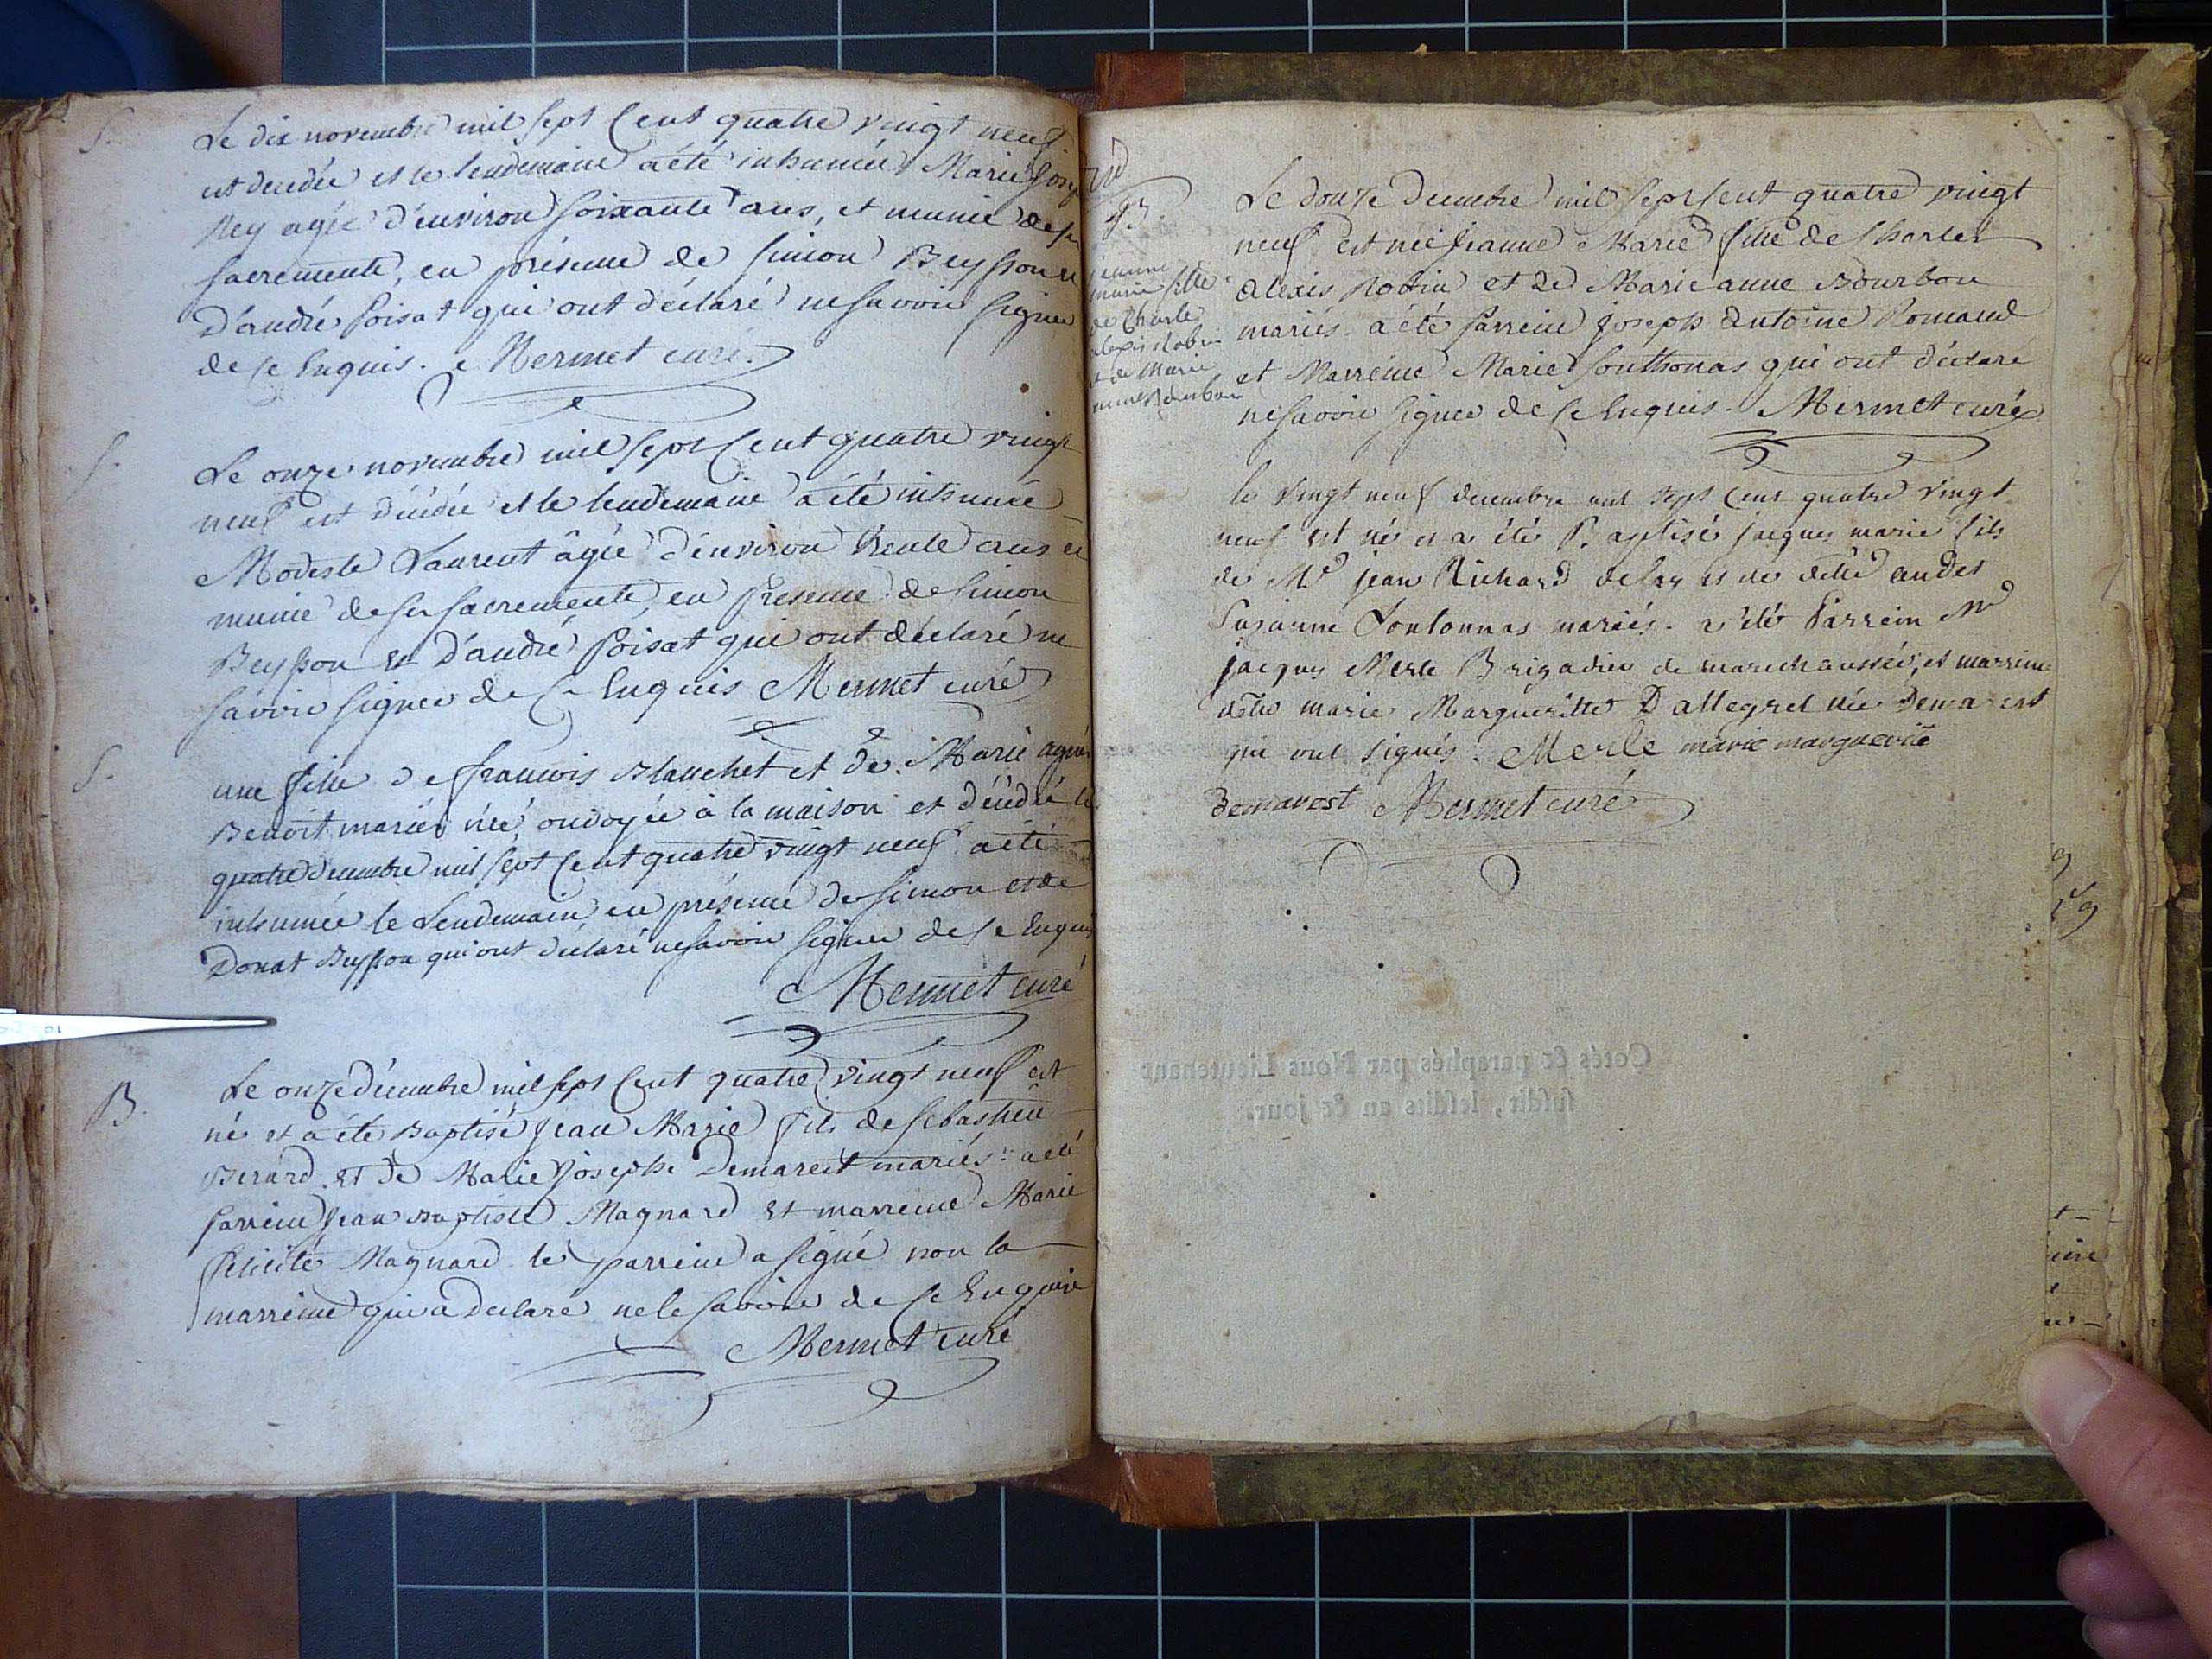 S.
Le dix novembre mil sept cent quatre vingt neuf
est decedée et le lendemain a été inhumée Marie Josep
Rey agée d'environ soixante ans, et munie de ses
sacrements, en présence de simon Beysson et
D'andré Poisat qui ont déclaré ne savoir signer
de ce Enquis. Mermet curé.
S.
Le onze novembre mil sept cent quatre vingt
neuf est décédée et le lendemain a été inhumée
Modeste Laurent âgée d'environ trente ans et
munie de ses sacrements, en présence de simon
Beysson et D'andré Poisat qui ont déclaré ne
savoir signer de ce Enquis Mermet curé
S.
une fille de francois Blanchet et de Marie agnès
Benoit mariés née, ondoyée à la maison et décédée le
quatre decembre mil sept cent quatre vingt neuf a été
inhumée le Lendemain en présence de simon et de
Donat Beysson qui ont déclaré ne savoir signer de ce Enquis
Mermet curé
B.
Le onze décembre mil sept cent quatre vingt neuf est
né et a été Baptisé Jean Marie fils de sebastien
Berard et de Marie Josephe Demarest mariés: a été
parrein Jean Baptiste Magnard et marreine Marie
félicité Magnard le parrein a signé non la
marreine qui a declaré ne le savoir de ce Enquise
Mermet curé
B.
jeanne
marie fille
de Charle
alexis Robin
et de Marie
anne Bourbon
Le douze decembre mil sept cent quatre vingt
neuf est née Jeanne Marie fille de Charles
alexis Robin et de Marie anne Bourbon
mariés a été parrein joseph antoine Romand
et Marreine Marie Southonas qui ont déclaré
ne savoir signer de ce Enquis. Mermet curé
le vingt neuf decembre mil sept cent quatre vingt
neuf est né et a été Baptisé jacques marie fils
de Mr jean Richard et de
Suzanne mariés. a été Parrein Mr
jacques Merle Brigadier de marechaussée, et marreine
marie Marguéritte Dallegret née Demarest
qui ont signés. Merle marie marguerite
demarest Mermet curé
Cotés & paraphés par Nous Lieutenant
susdit, lesdits an & jour.